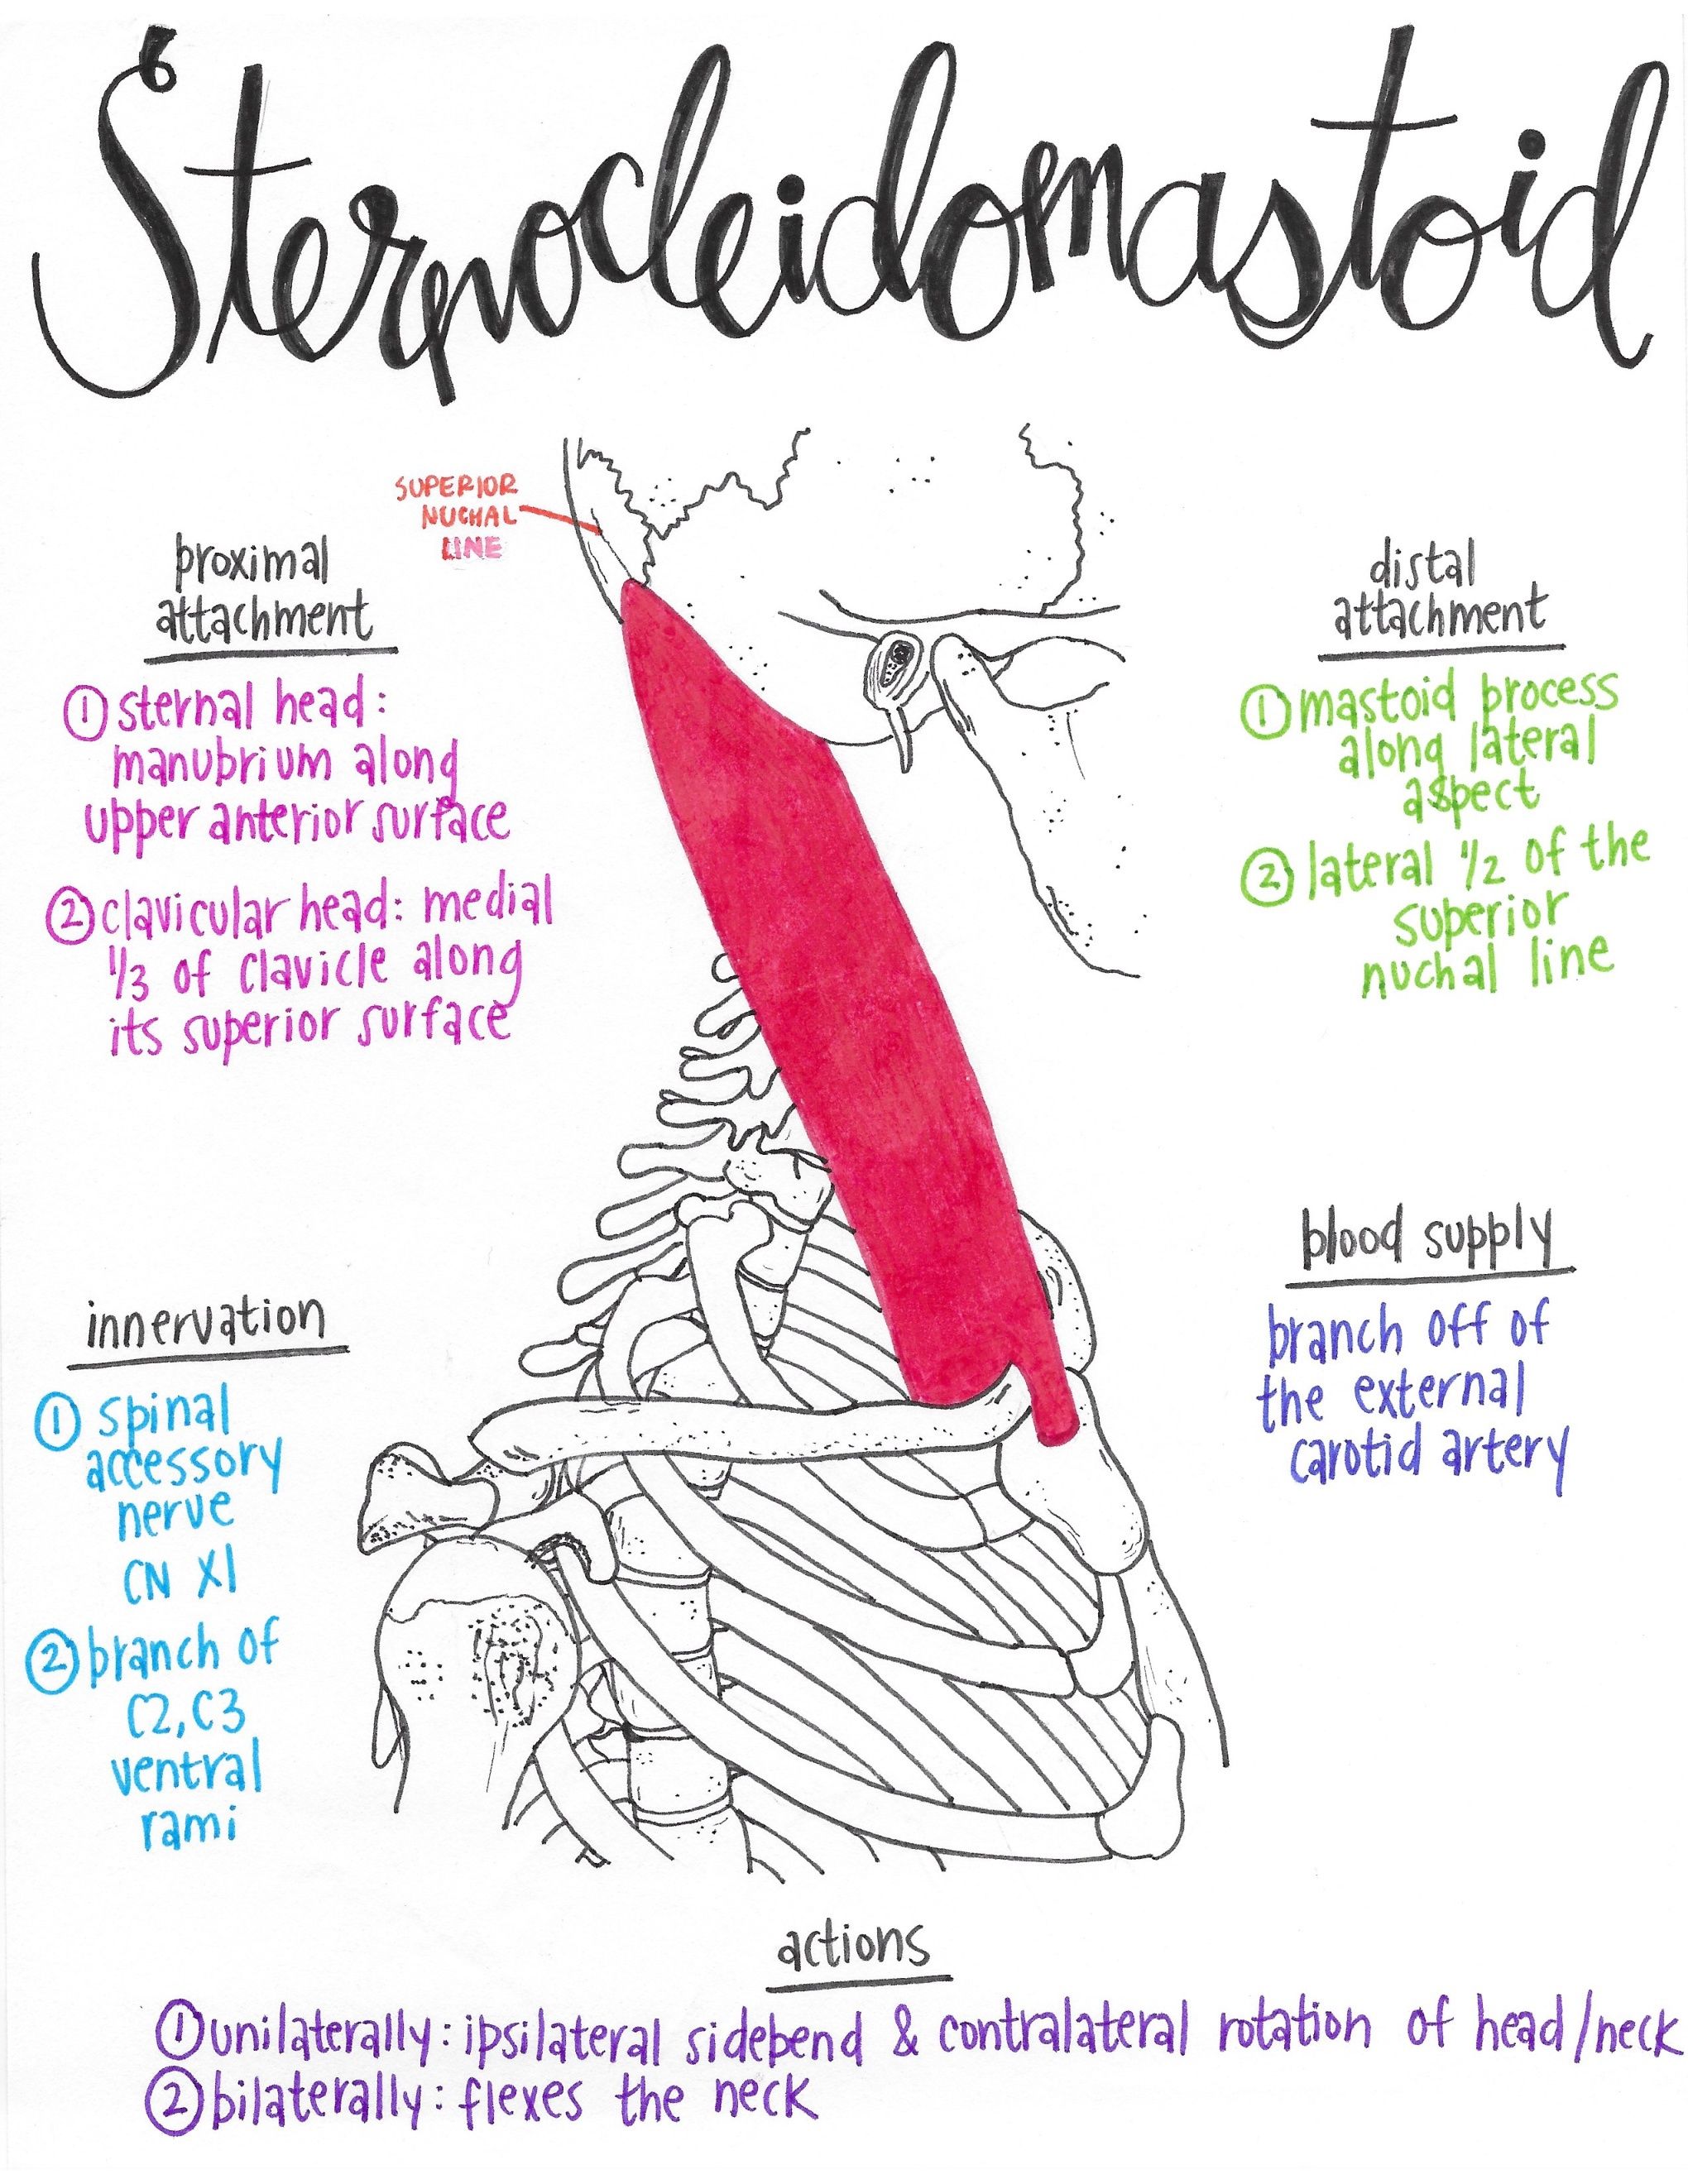 Sternocleidomastoid
SUPERIOR
NUCHAL
LINE
proximal
attachment
① sternal head:
manubrium along
upper anterior surface
② clavicular head: medial
1/3 of clavicle along
its superior surface
distal
attachment
① mastoid process
along lateral
aspect
② lateral 1/2 of the
superior
nuchal line
innervation
① spinal
accessory
nerve
CN XI
② branch of
C2, C3
ventral
rami
blood supply
branch off of
the external
carotid artery
actions
① unilaterally: ipsilateral sidebend & contralateral rotation of head/neck
② bilaterally: flexes the neck